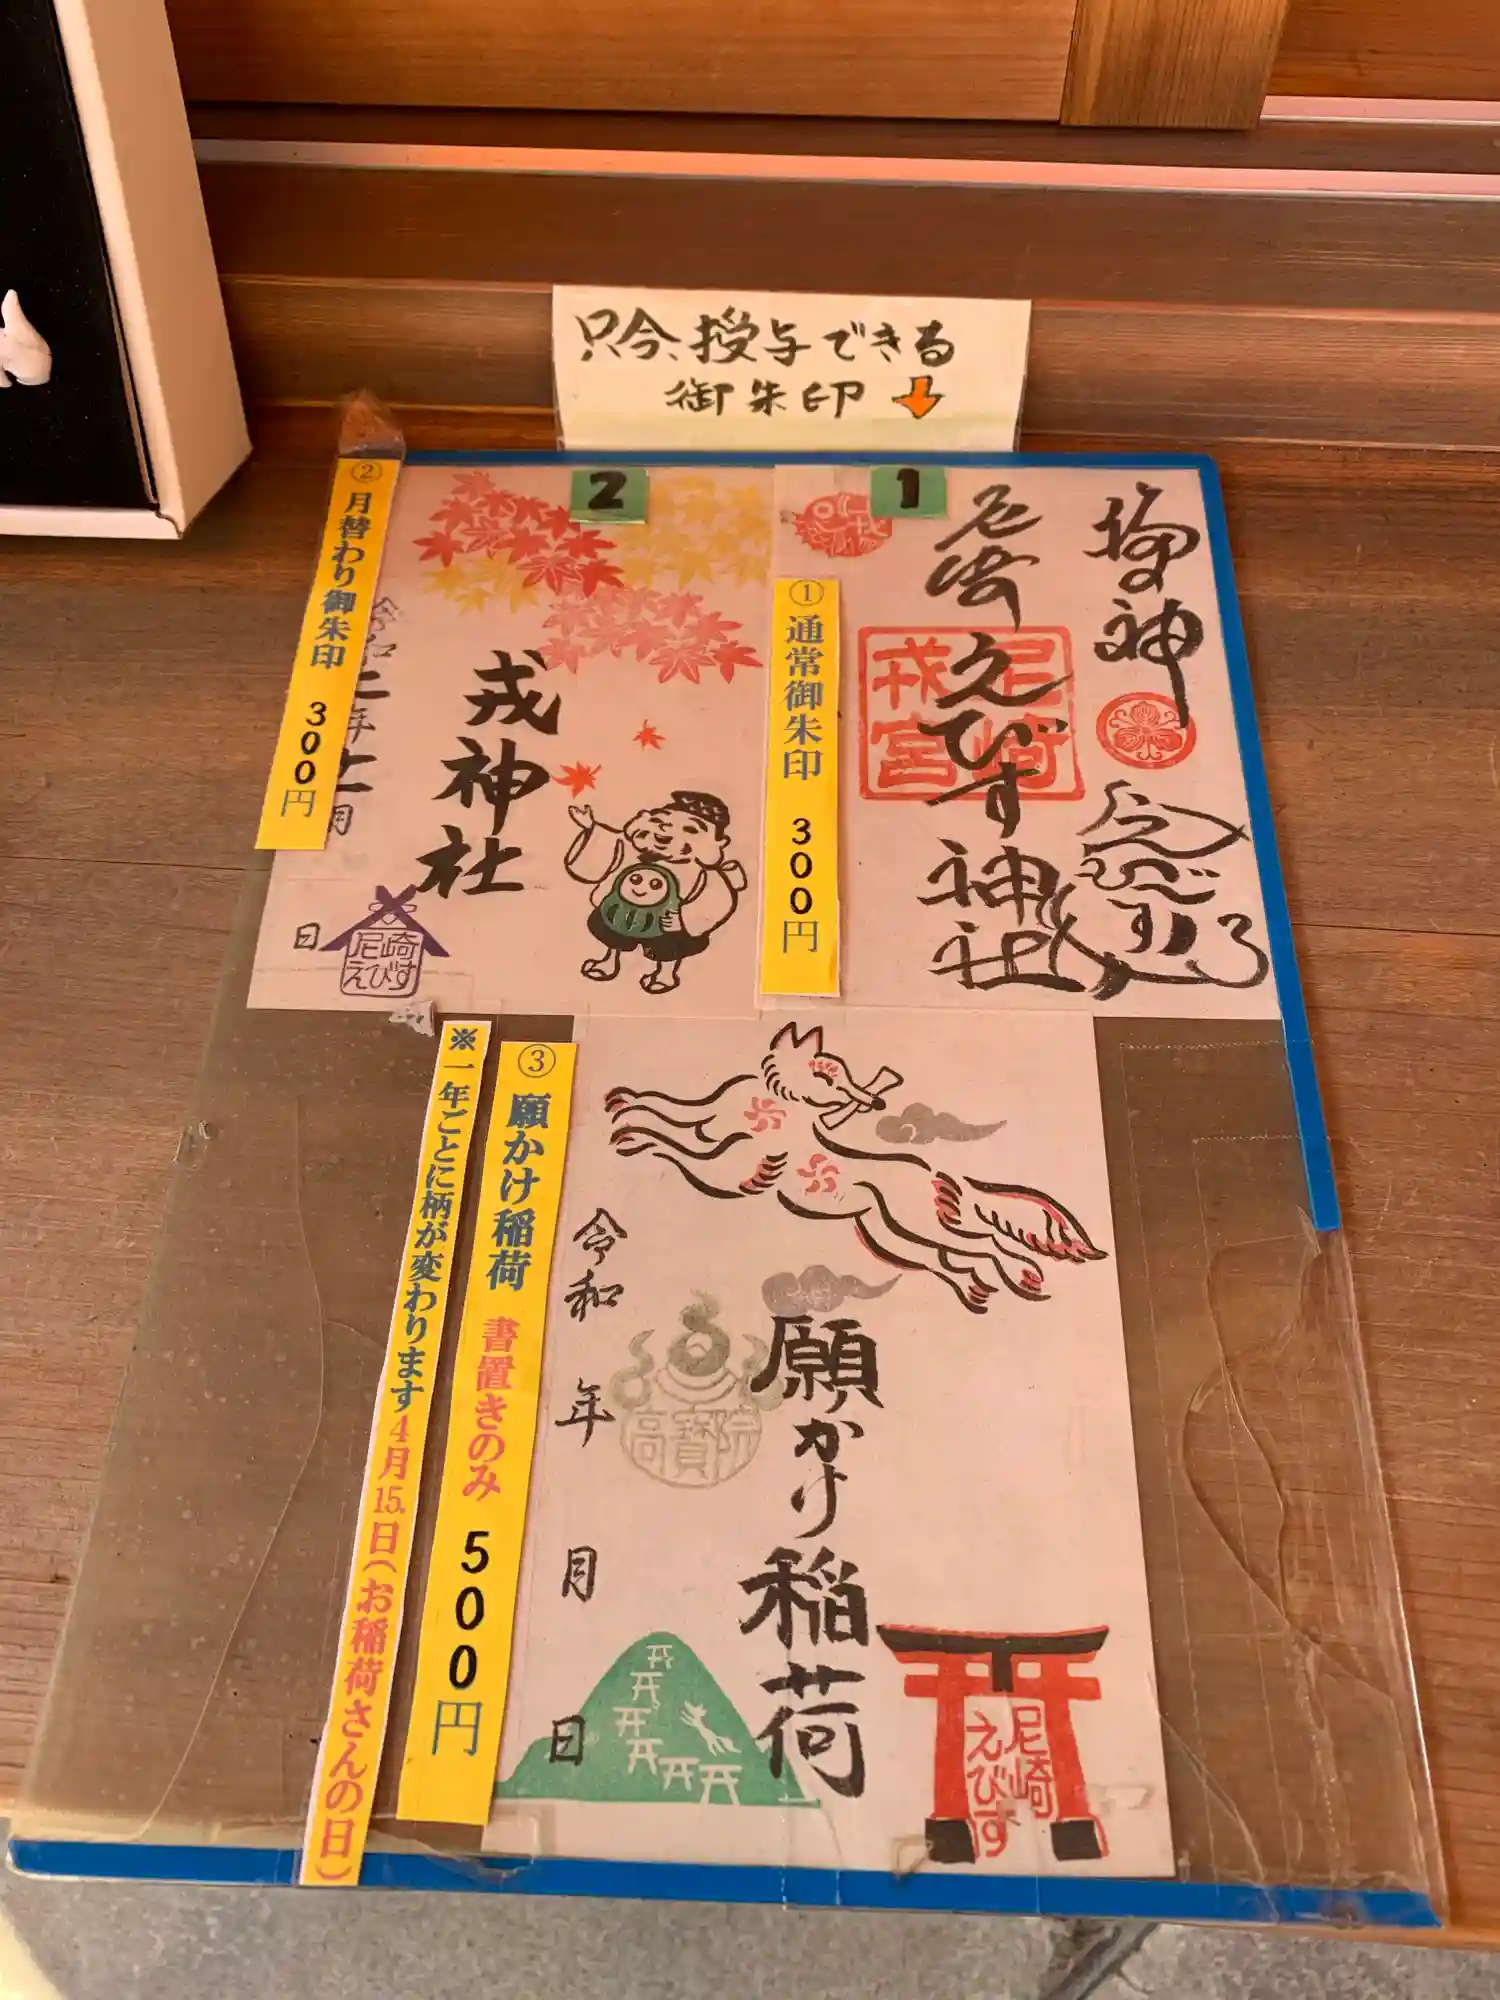 只今、授与できる
御朱印
2
1
② 月替わり御朱印 300円
戎神社
令和二年十一月
日
尼崎
えびす
① 通常御朱印 300円
尼崎えびす神社
尼崎
戎宮
③ 願かけ稲荷 書置きのみ 500円
※一年ごとに柄が変わります 4月15日(お稲荷さんの日)
願かけ稲荷
令和 年 月 日
高寶院
尼崎
えびす